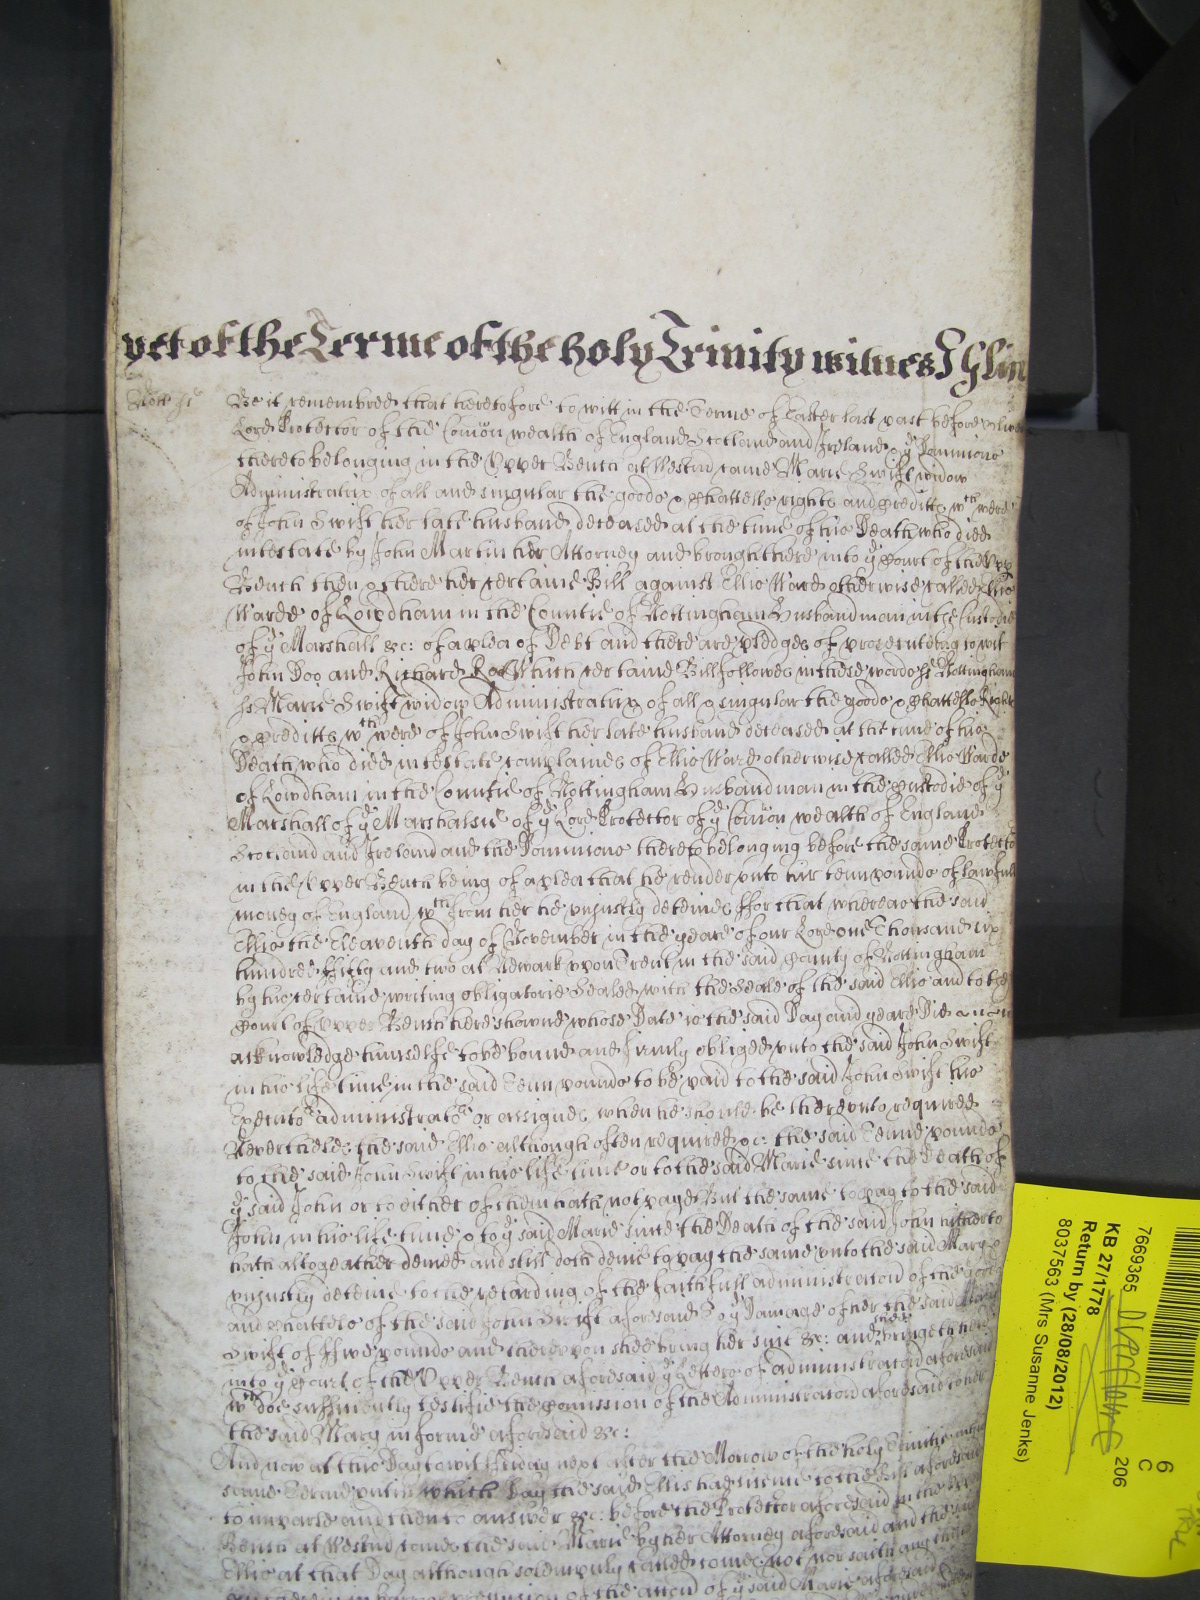 yet of the Terme of the holy Trinity witnes J Glin
Nott ss
Be it remembred that heretofore to witt in the Terme of Easter last past before Oliver
Lord Protector of the Comon wealth of England Scotland and Ireland & ye Dominions
thereto belonging in the Upper Bench at Westmr came Marie Swift widow
Administratrix of all and singular the goods & Chattells rights and Creditts wch were
of John Swift her late husband deceased at the time of his Death who died
intestate by John Martin her Attorney and brought here into ye Court of the Upp
Bench then & there her certaine Bill against Ellis Ward otherwise called Ellis
Warde of Lowdham in the Countie of Nottingham Husbandman in the Custodie
of ye Marshall &c: of a plea of Debt and there are pledges of prosecuteing to wit
John Doo and Richard Roo Which certaine Bill followes in these words ss Nottingham
ss Marie Swift widow Administratrix of all & singular the goods & Chattells Rights
& Creditts wch were of John Swift her late husband deceased at the time of his
Death who died intestate complaines of Ellis Ward otherwise called Ellis Warde
of Lowdham in the Countie of Nottingham Husbandman in the Custodie of ye
Marshall of ye Marshalsie of ye Lord Protector of ye Comon wealth of England
Scotland and Ireland and the Dominions thereto belonging before the same Protector
in the Upper Bench being of a plea that he render unto her tenn pounds of lawfull
money of England wch from her he unjustly deteines ffor that whereas the said
Ellis the Eleaventh day of November in the yeare of our Lord one Thousand six
hundred ffifty and two at Newark upon Trent in the said County of Nottingham
by his certaine writing obligatorie Sealed with the Seale of the said Ellis and to the
Court of Upper Bench here showne whose Date is the said Day and yeare Did
acknowledge himselfe to be bound and firmly obliged unto the said John Swift
in his life time in the said Tenn pounds to be paid to the said John Swift his
Executors administrators or assignes when he should be thereunto required
Neverthelesse the said Ellis although often required &c: the said Tenne pounds
to the said John Swift in his life time or to the said Marie since the Death of
ye said John or to either of them hath not payd But the same to pay to the said
John in his life time & to ye said Marie since the Death of the said John hitherto
hath altogeather denied and still doth denie to pay the same unto the said Mary &
unjustly deteine to the retarding of the faithfull administracion of the goods
and Chattells of the said John Swift aforesaid & to ye Damage of her the said Marie
Swift of ffive pounds and thereupon shee bring her suit &c: and shee bringeth here
into ye Court of the Upper Bench aforesaid ye Letters of administracion aforesaid
wch doe sufficiently testifie the Comission of the Administracion aforesaid to her
the said Mary in forme aforesaid &c:
And now at this Day to wit ffriday next after the Morrow of the holy Trinitie
same Terme untill which Day the said Ellis had licence to the Bill aforesaid
to imparle and then to answer &c: before the Protector aforesaid in the Upper
Bench at Westmr comes the said Marie by her Attorney aforesaid and the
Ellis at that Day although solemnly called comes not nor saith any thing
of the accon of ye said Marie aforesaid
7669365
KB 27/1778
Return by (28/08/2012)
8037563 (Mrs Susanne Jenks)
6
C
206